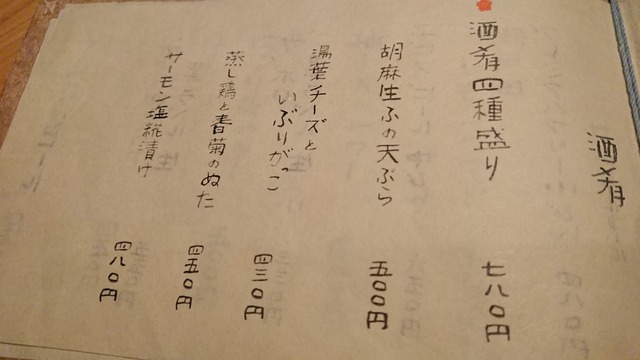 酒肴
酒肴四種盛り
七八〇円
胡麻生ふの天ぷら
五〇〇円
湯葉チーズと
いぶりがっこ
四三〇円
蒸し鶏と春菊のぬた
四五〇円
サーモン塩糀漬け
四八〇円